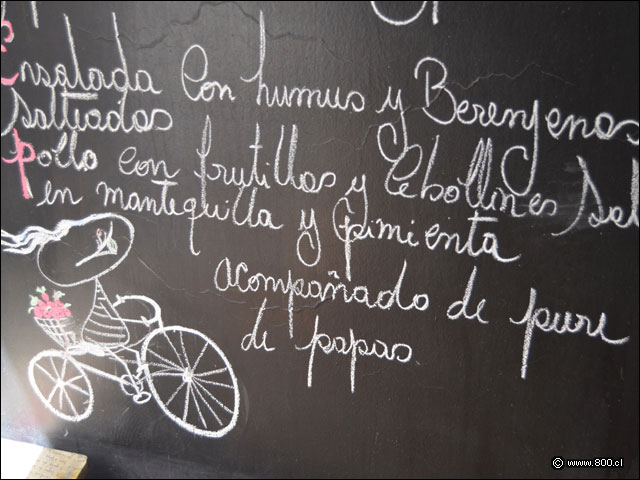 Ensalada Con humus y Berenjenas
Salteadas
pollo con frutillas y Cebollines Sal
en mantequilla y pimienta
acompañado de pure
de papas
© www.800.cl